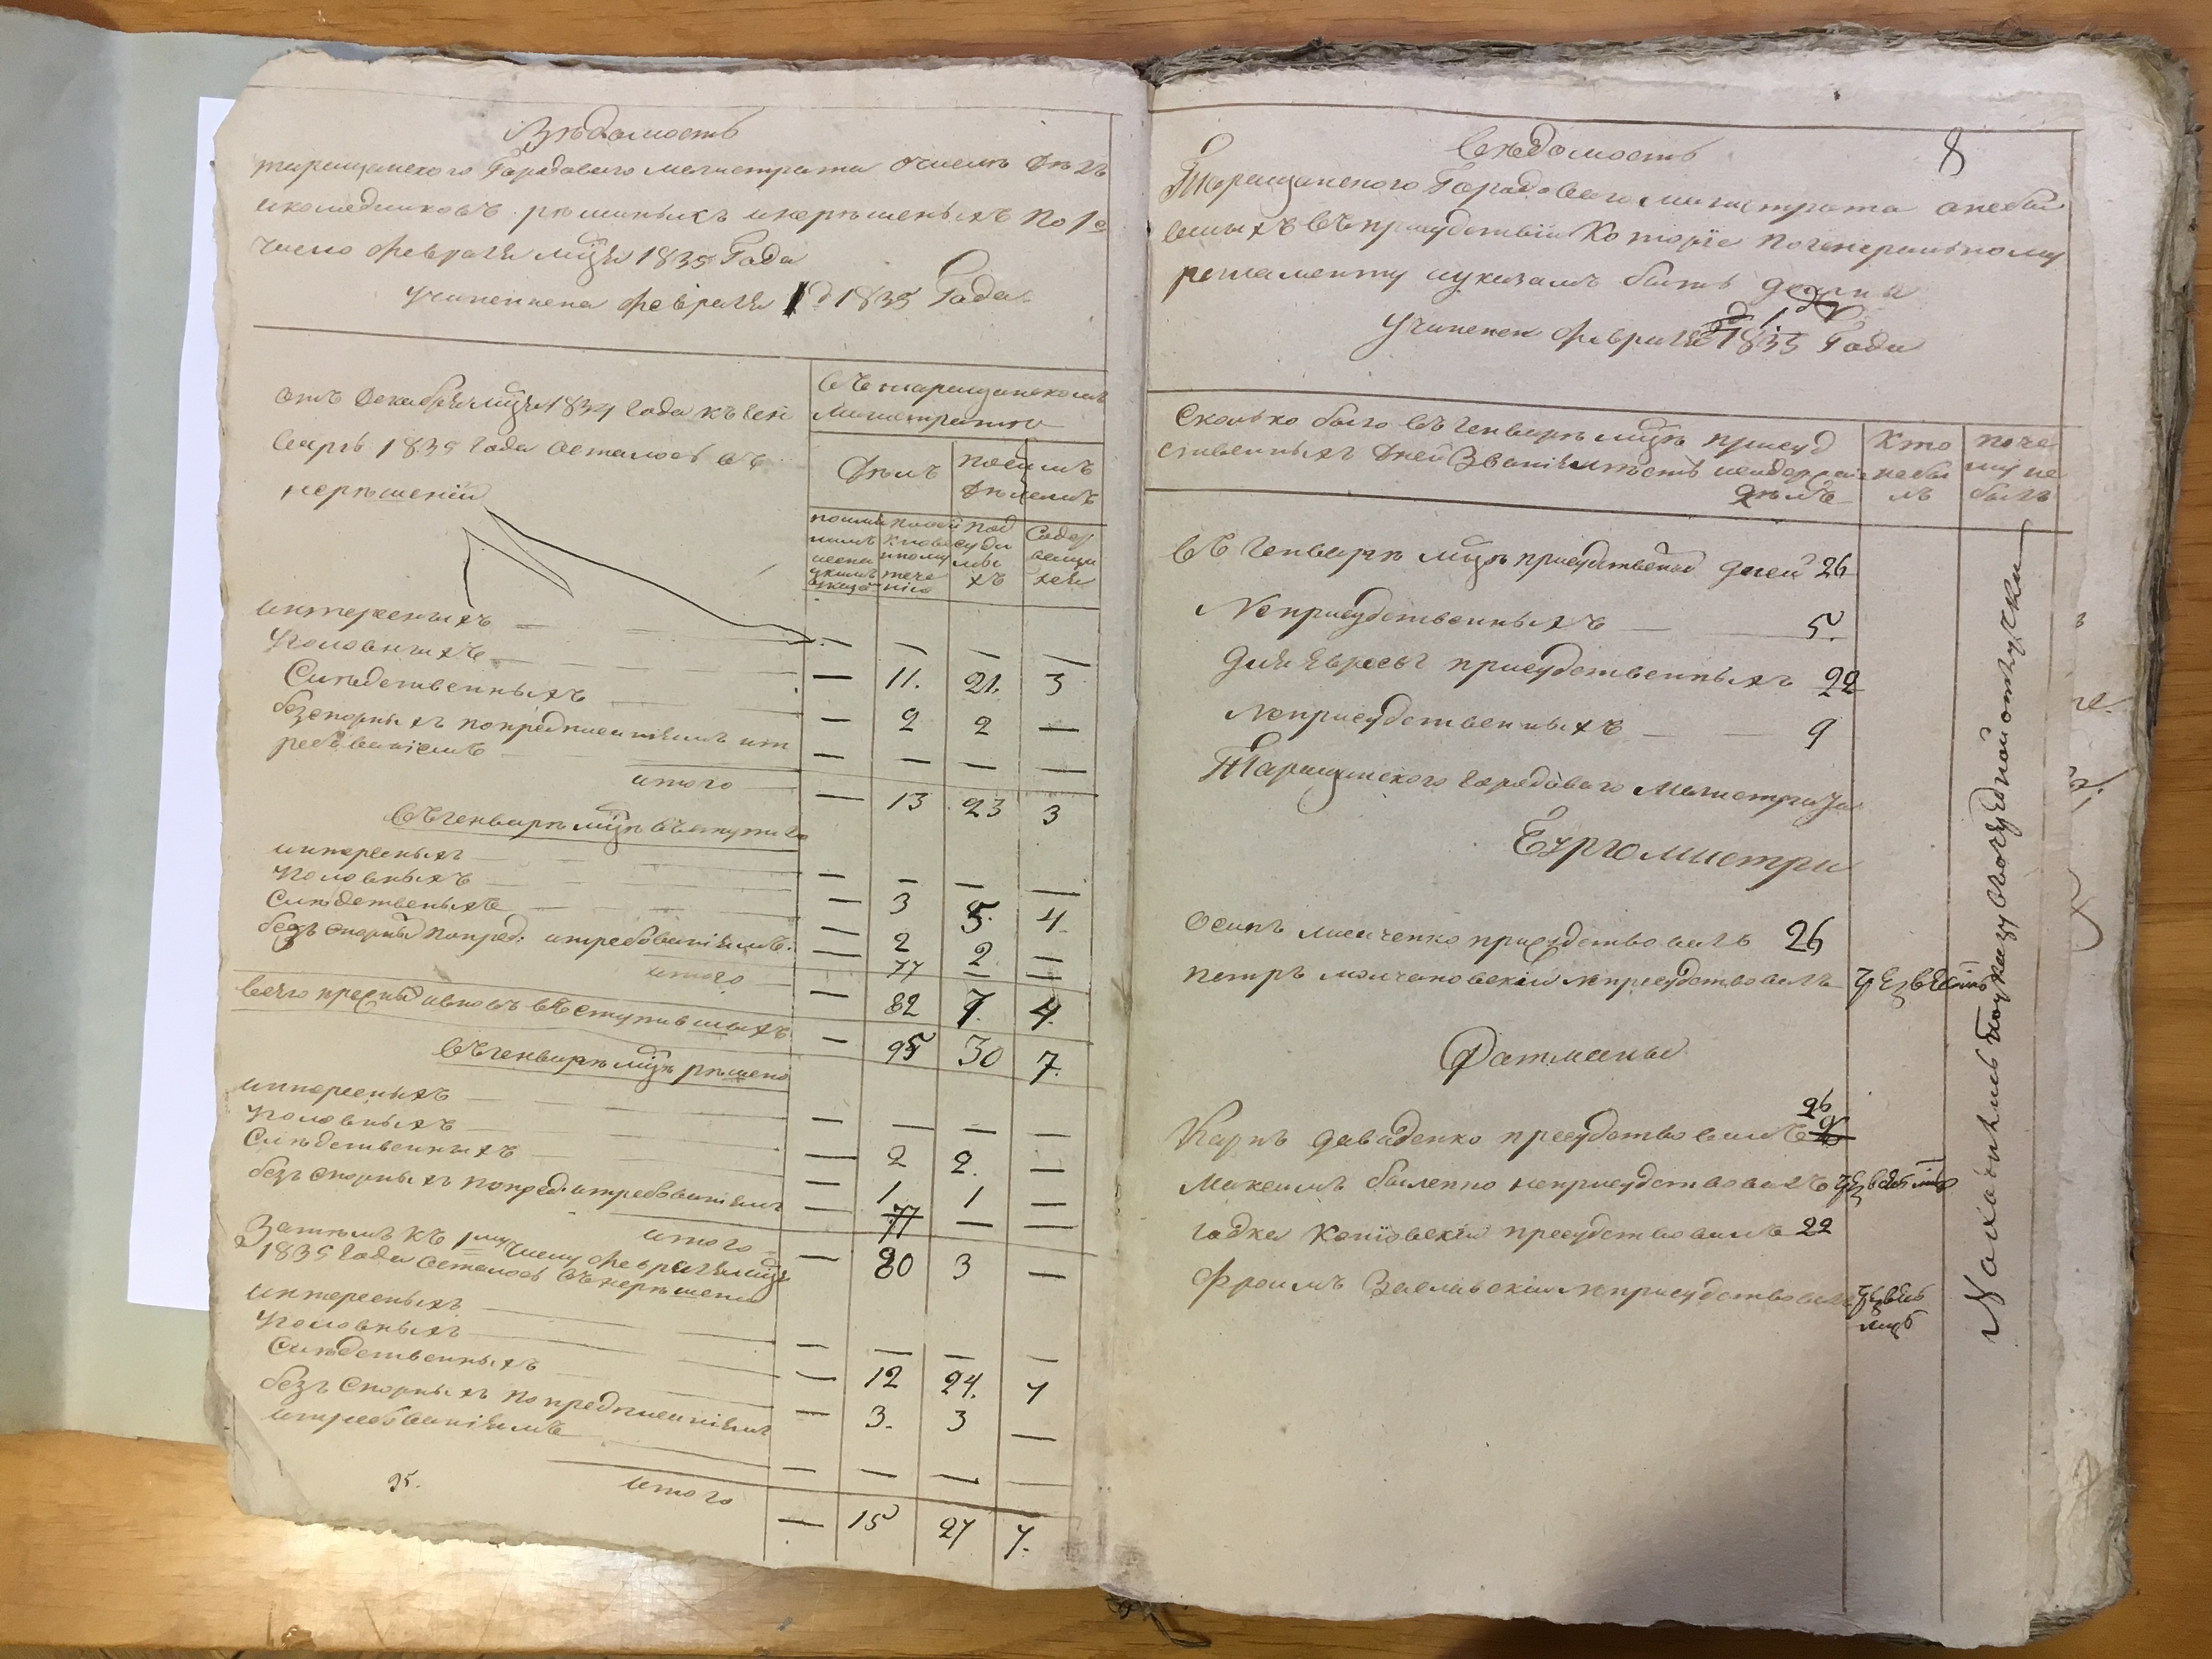 Вѣдомость
таращанского Городового магистрата очислѣ дѣлъ
иколодниковъ рѣшиныхъ инерѣшеныхъ по 1е
число февраля мця 1835 Года
учиненна февраля 1 д 1835 Года
отъ декабря мца 1834 года къ ген
варѣ 1835 года осталось въ
нерѣшеніи
въ таращанскомъ
магистратѣ
Дѣлъ
посимъ
дѣламъ
под
суди
мы
хъ
интересныхъ
Уголовныхъ — 11. 21. 3
Слѣдственныхъ — 2 2 —
безспорныхъ попредписаніямъ ит
ребваніямъ — — — —
итого — 13 23 3
Въ генварѣ мцѣ въступило
интересныхъ — — — —
уголовныхъ — 3 5. 4.
Слѣдственыхъ — 2 2 —
безъ спорны попред: итребованіямъ. — 77 — —
итого — 82 7. 4.
всего преж вновъ въступившихъ — 95 30 7.
Въ генварѣ мцѣ рѣшено
интересныхъ — — — —
уголовныхъ — 2 2. —
Слѣдственныхъ — 1 1 —
безъ спорныхъ попред: итребованіям — 77 — —
итого — 80 3 —
Затѣмъ къ 1му числу февраля мця
1835 года осталось въ нерѣшени
интересныхъ — — — —
Уголовныхъ — 12 24. 7
Слѣдственныхъ — 3. 3 —
безъ спорныхъ попредписаніям
итребованіямъ — — — —
итого — 15 27 7.
95.
8
Вѣдомость
Таращанского Городового магистрата онебы
вшыхъ въ присудствіи Которіе погенеральному
регламенту иуказамъ быть должны
Учинена февраля 1 д 1835 Года
Сколько было въ генварѣ мцѣ присуд
ственныхъ дней
Кто
небы
лъ
поче
му не
былъ
Въ генварѣ мцѣ присудственных дней 26
Неприсудственныхъ — 5.
для евреевъ присудственныхъ 22
Неприсудственныхъ — 9
Таращанского городоваго Магистрата
Бургомистри
Осипъ присудствовалъ 26
петръ молчановскій неприсудствовалъ
Ратманы
26
Карпъ давиденко присудствовалъ
Максимъ неприсудствовалъ
присудствовалъ 22
Фроимъ Заславскій неприсудствовалъ
Находились поуказу